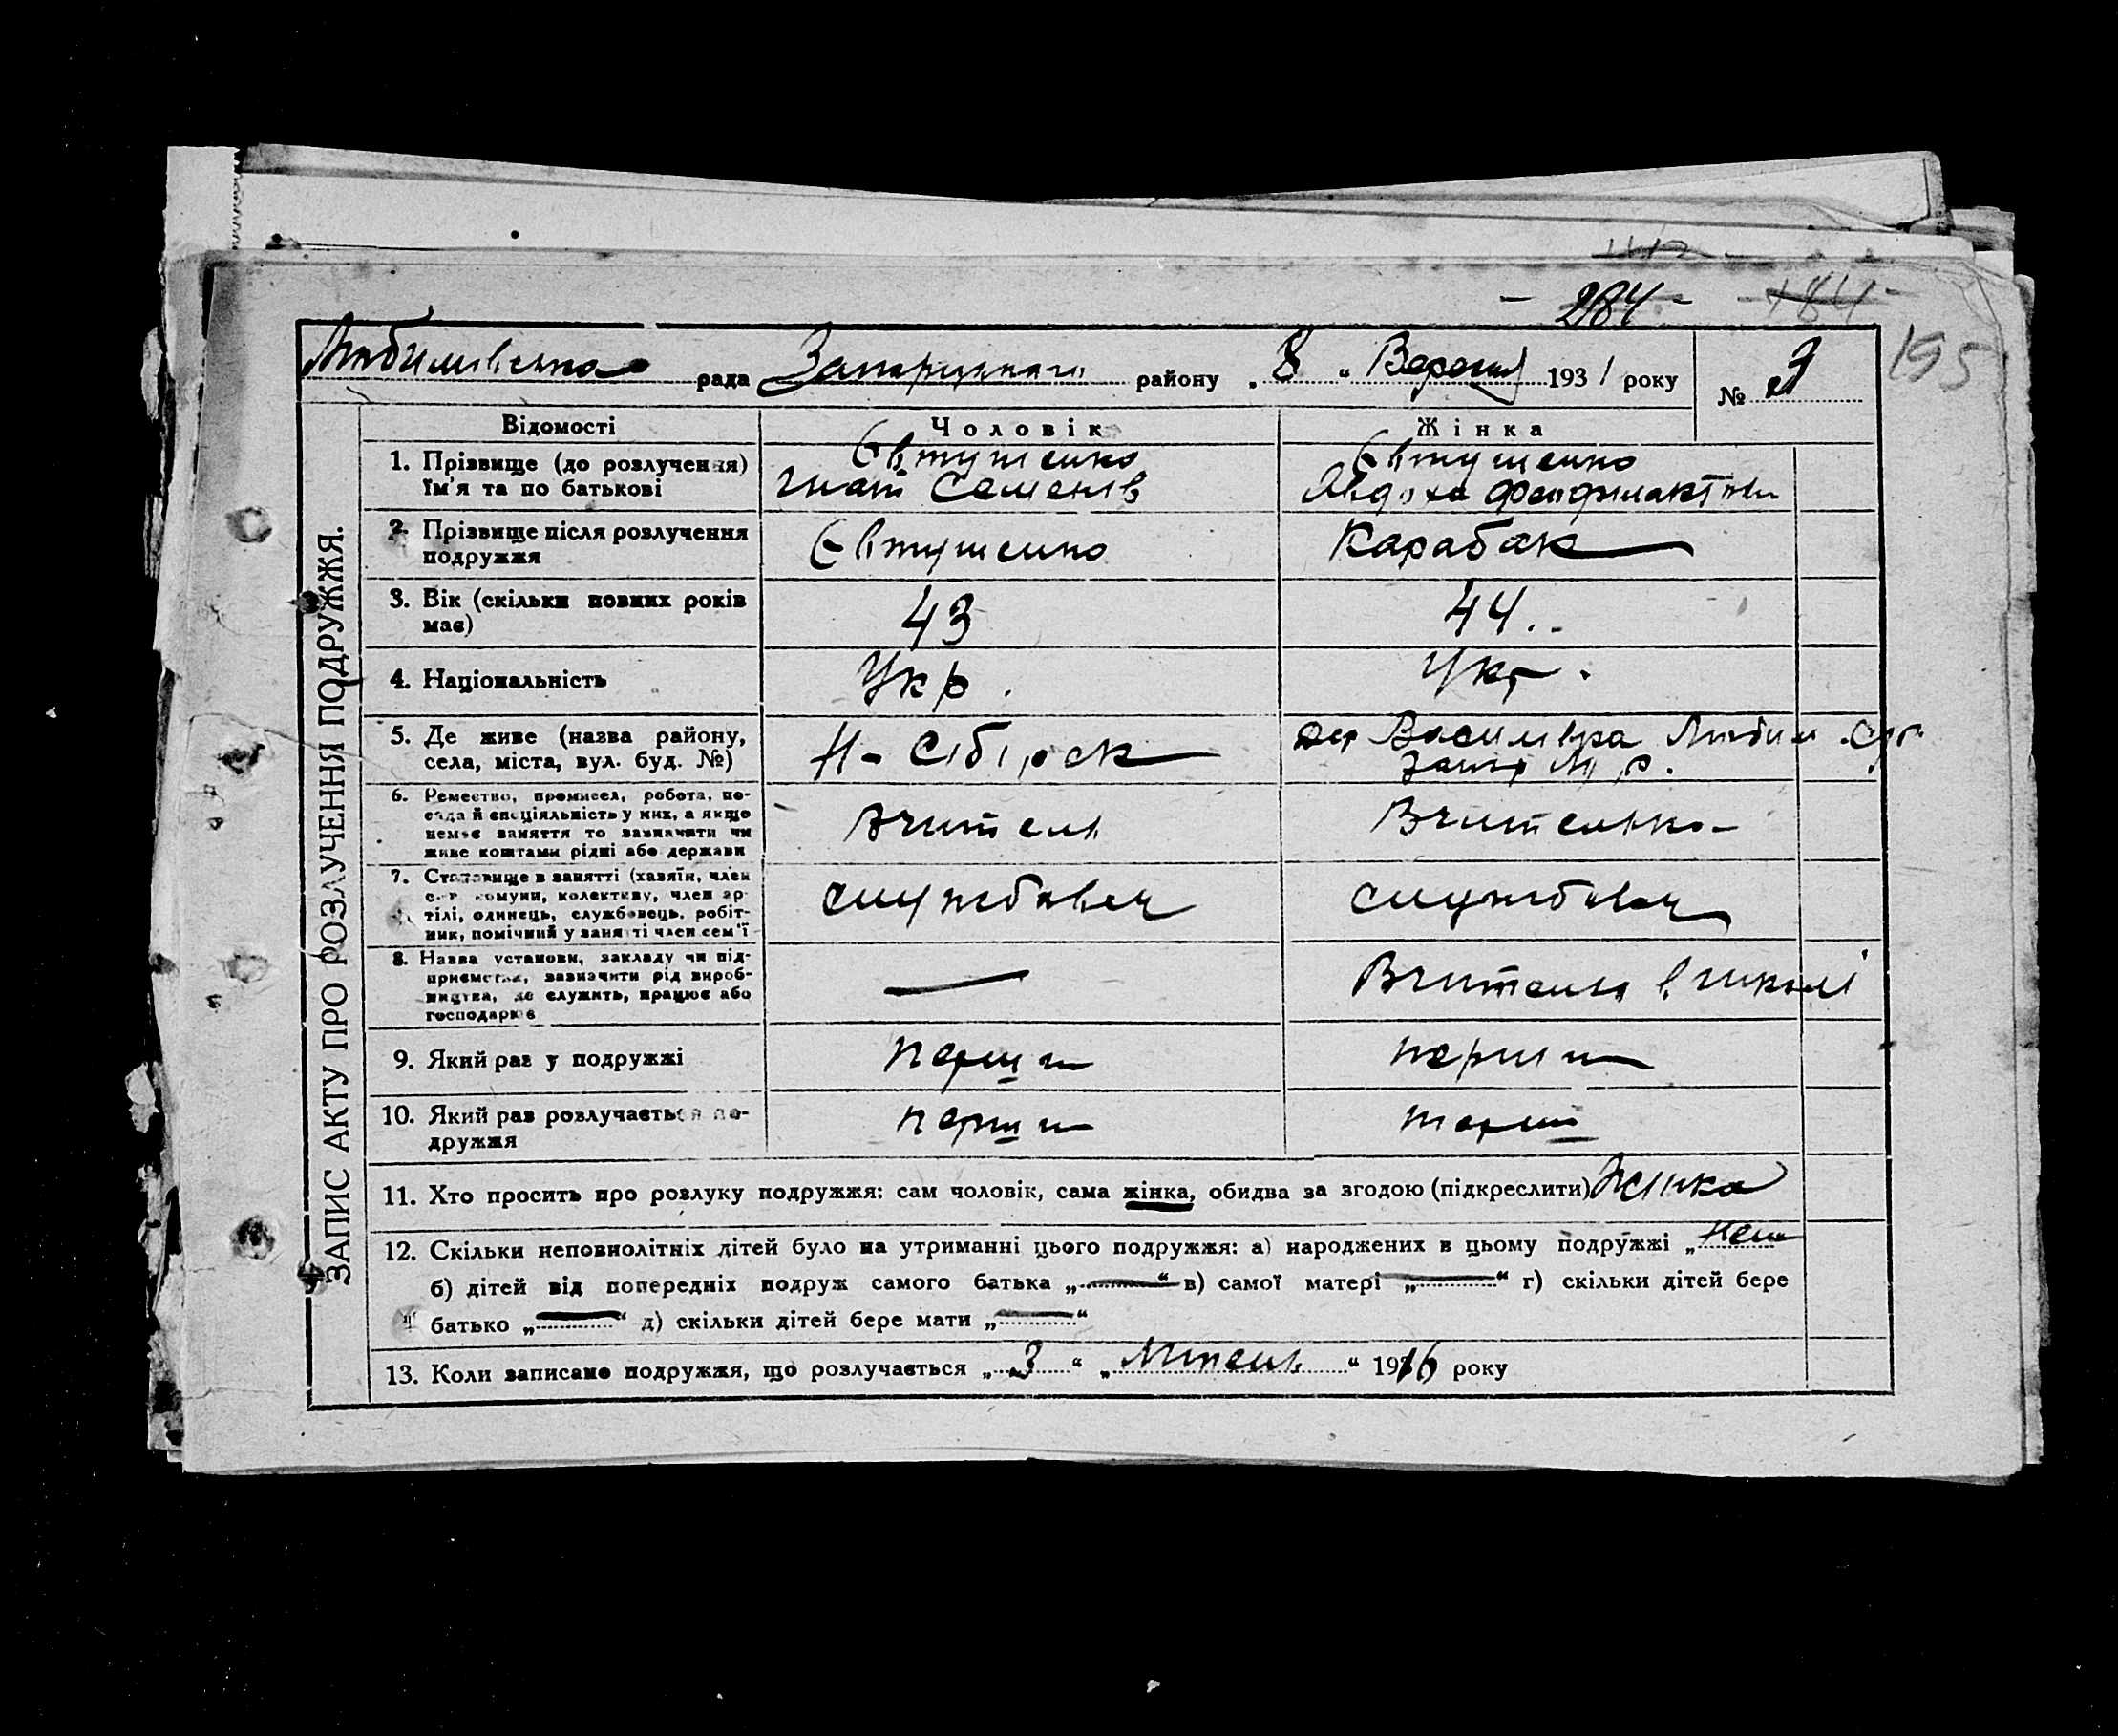 - 284 - - 184 -
195
Любимівська рада Запоризького району „8“ Вересня 1931 року № 3
ЗАПИС АКТУ ПРО РОЗЛУЧЕННЯ ПОДРУЖЖЯ.
Відомості Чоловік Жінка
1. Прізвище (до розлучення) Євтушенко Євтушенко
їм'я та по батькові Гнат Семенів Явдоха Феофилактівн
2. Прізвище після розлучення Євтушенко Карабак
подружжя
3. Вік (скільки повних років 43 44..
має)
4. Національність Укр. Укр.
5. Де живе (назва району, Н-Сібірск Василівка Любим.
села, міста, вул. буд. №)
6. Ремество, промисел, робота, по-
сада й спеціяльність у них, а якщо Вчитель Вчителька
немає заняття то зазначити чи
живе коштами рідні або держави
7. Становище в занятті (хазяїн, член
с.-г. комуни, колективу, член ар- службовец службовец
тілі, одинець, службовець, робіт-
ник, помічний у занятті член сем'ї
8. Назва установи, закладу чи під-
приємства, зазначити рід вироб- — Вчителька в школі
ництва, де служить, працює або
господарює
9. Який раз у подружжі перший перший
10. Який раз розлучається по- перший перший
дружжя
11. Хто просить про розлуку подружжя: сам чоловік, сама жінка, обидва за згодою (підкреслити) Жінка
12. Скільки неповнолітніх дітей було на утриманні цього подружжя: а) народжених в цьому подружжі „нема
б) дітей від попередніх подруж самого батька „—“ в) самої матері „—“ г) скільки дітей бере
батько „—“ д) скільки дітей бере мати „—“
13. Коли записано подружжя, що розлучається „3“ „Липень“ 1916 року